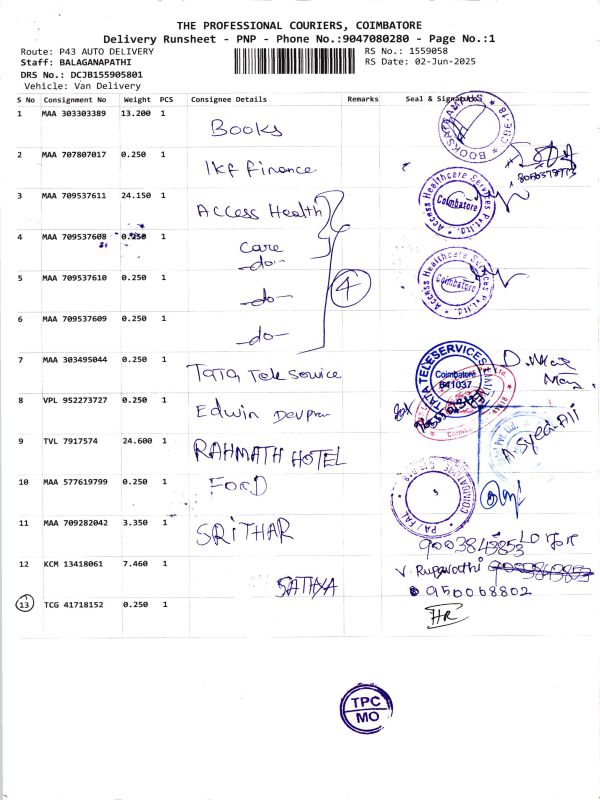 THE PROFESSIONAL COURIERS, COIMBATORE
Delivery Runsheet - PNP - Phone No.:9047080280 - Page No.:1
Route: P43 AUTO DELIVERY
RS No.: 1559058
Staff: BALAGANAPATHI
RS Date: 02-Jun-2025
DRS No.: DCJB155905801
Vehicle: Van Delivery
S No Consignment No Weight PCS Consignee Details Remarks Seal & Signature
1 MAA 303303389 13.200 1 Books
2 MAA 707807017 0.250 1 Ikf Finance
3 MAA 709537611 24.150 1 Access Health
Access Healthcare Services Pvt.Ltd. Coimbatore
4 MAA 709537608 0.250 1 care
-do-
5 MAA 709537610 0.250 1 -do-
4
Access Healthcare Services Pvt.Ltd. Coimbatore
6 MAA 709537609 0.250 1 -do-
7 MAA 303495044 0.250 1 Tata Tele Service
TATA TELESERVICES Coimbatore 641037
8 VPL 952273727 0.250 1 Edwin
A. Syed Ali
9 TVL 7917574 24.600 1 RAHMATH HOTEL
10 MAA 577619799 0.250 1 FORD
11 MAA 709282042 3.350 1 SRITHAR
9003843853
12 KCM 13418061 7.460 1 SATHYA
950068802
13 TCG 41718152 0.250 1
HR
TPC
MO